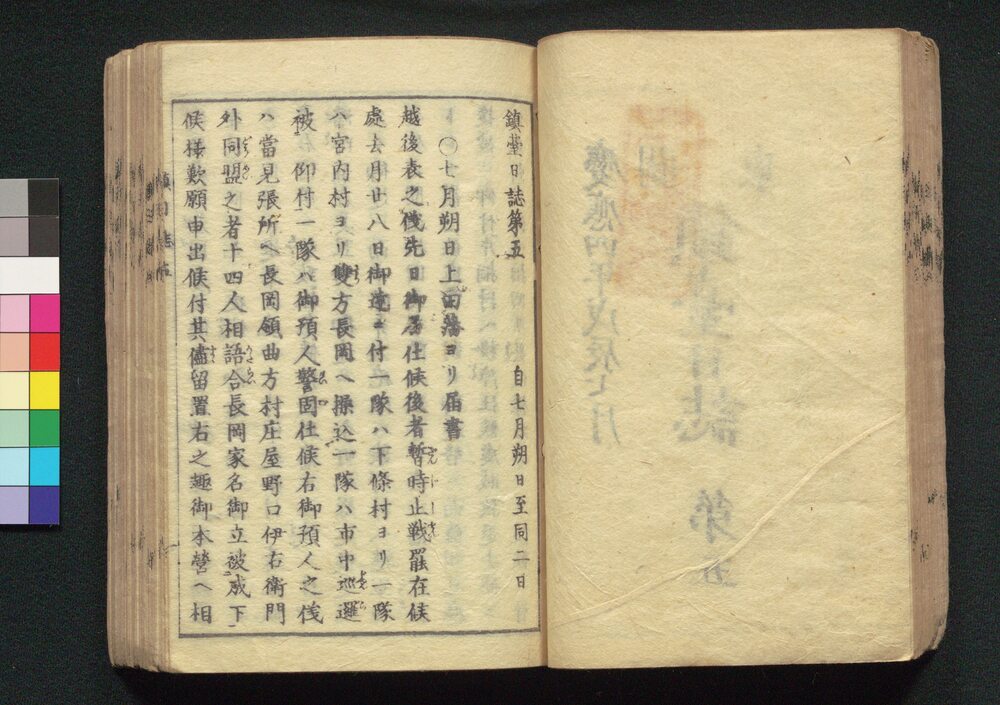 鎮臺日誌第五 自七月朔日至同二日
〇七月朔日上田藩ヨリ届書
越後表之儀先日御届仕候後者暫時止戦罷在候
處去月廿八日御達ニ付一隊ハ下條村ヨリ一隊
ハ宮内村ヨリ雙方長岡ヘ操込一隊ハ市中巡邏
被 仰付一隊ハ御預人警固仕候右御預人之儀
ハ當見張所ヘ長岡領曲方村庄屋野口伊右衛門
外同盟之者十四人相語合長岡家名御立被成下
候様歎願申出候付其儘留置右之趣御本營ヘ相